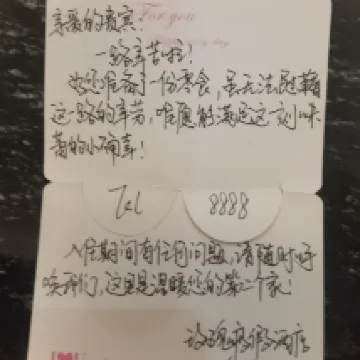 亲爱的贵宾!
For you
一路辛苦啦!
为您准备了一份零食,虽无法慰藉
这一路的辛劳,但愿能满足这一刻味
蕾的小确幸!
Tel 8888
入住期间有任何问题,请随时呼
唤我们,这里是温暖您的第二个家!
度假酒店